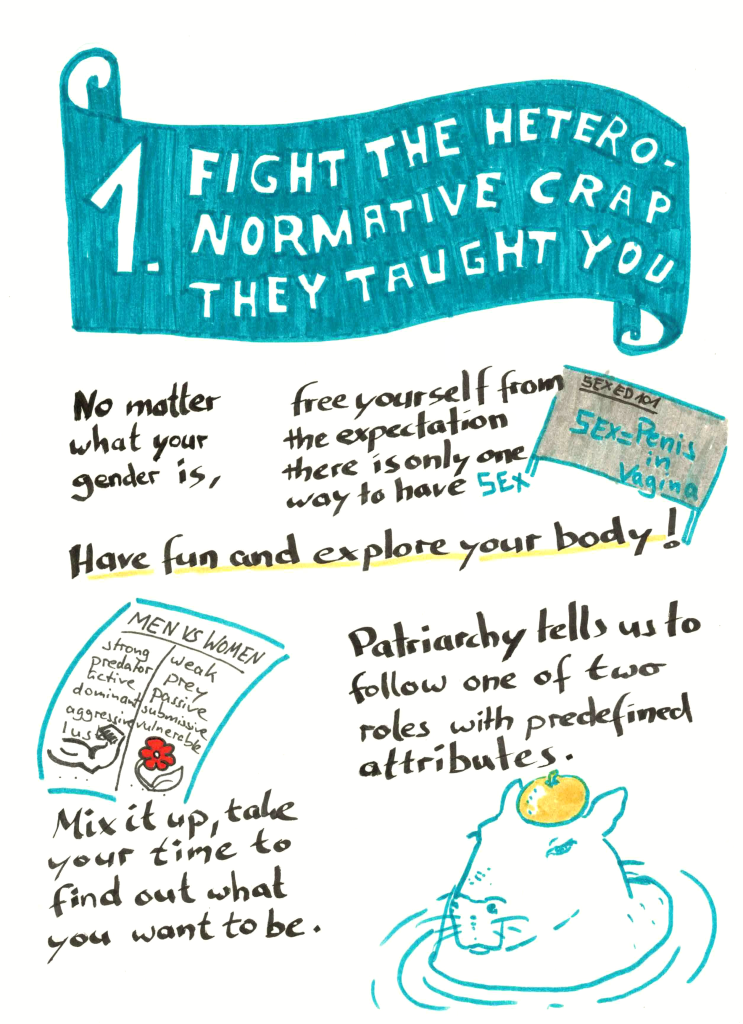 1. FIGHT THE HETERO-
NORMATIVE CRAP
THEY TAUGHT YOU
No matter
what your
gender is,
free yourself from
the expectation
there is only one
way to have SEX
SEX ED 101
SEX=Penis
in
Vagina
Have fun and explore your body!
MEN VS WOMEN
strong
predator
active
dominant
aggressive
lust
weak
prey
passive
submissive
vulnerable
Patriarchy tells us to
follow one of two
roles with predefined
attributes.
Mix it up, take
your time to
find out what
you want to be.